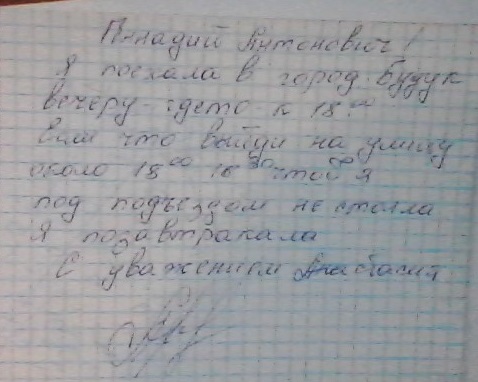 Геннадий Антонович!
Я поехала в город. Буду к
вечеру где то к 18.00
Если что выйди на улицу
около 18 00 чтоб я
под подъездом не стояла
Я позавтракала
С уважением Анастасия